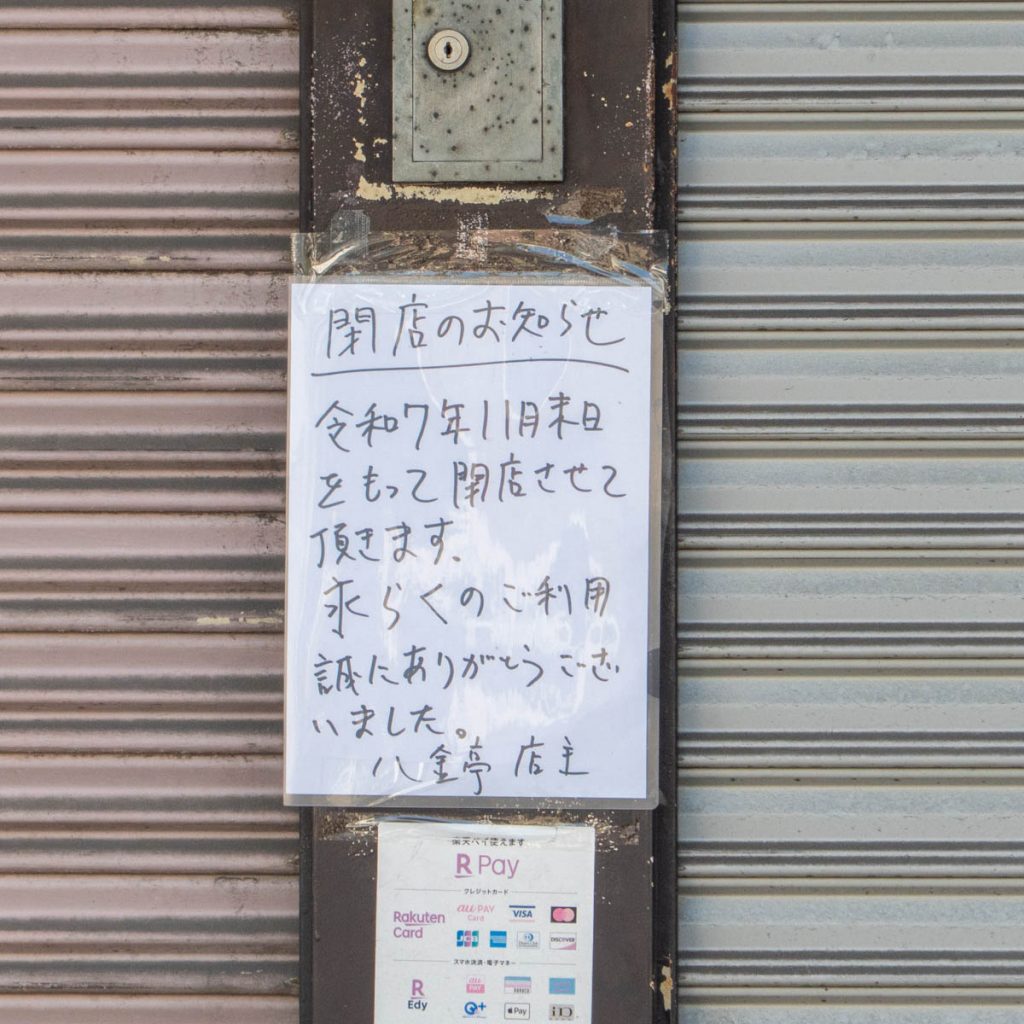 閉店のお知らせ
令和7年11月末日
をもって閉店させて
頂きます、
永らくのご利用
誠にありがとうござ
いました。
八金亭 店主
楽天ペイ使えます
R Pay
クレジットカード
Rakuten Card
au PAY Card
VISA
JCB
DISCOVER
スマホ決済・電子マネー
R Edy
au PAY
Apple Pay
iD